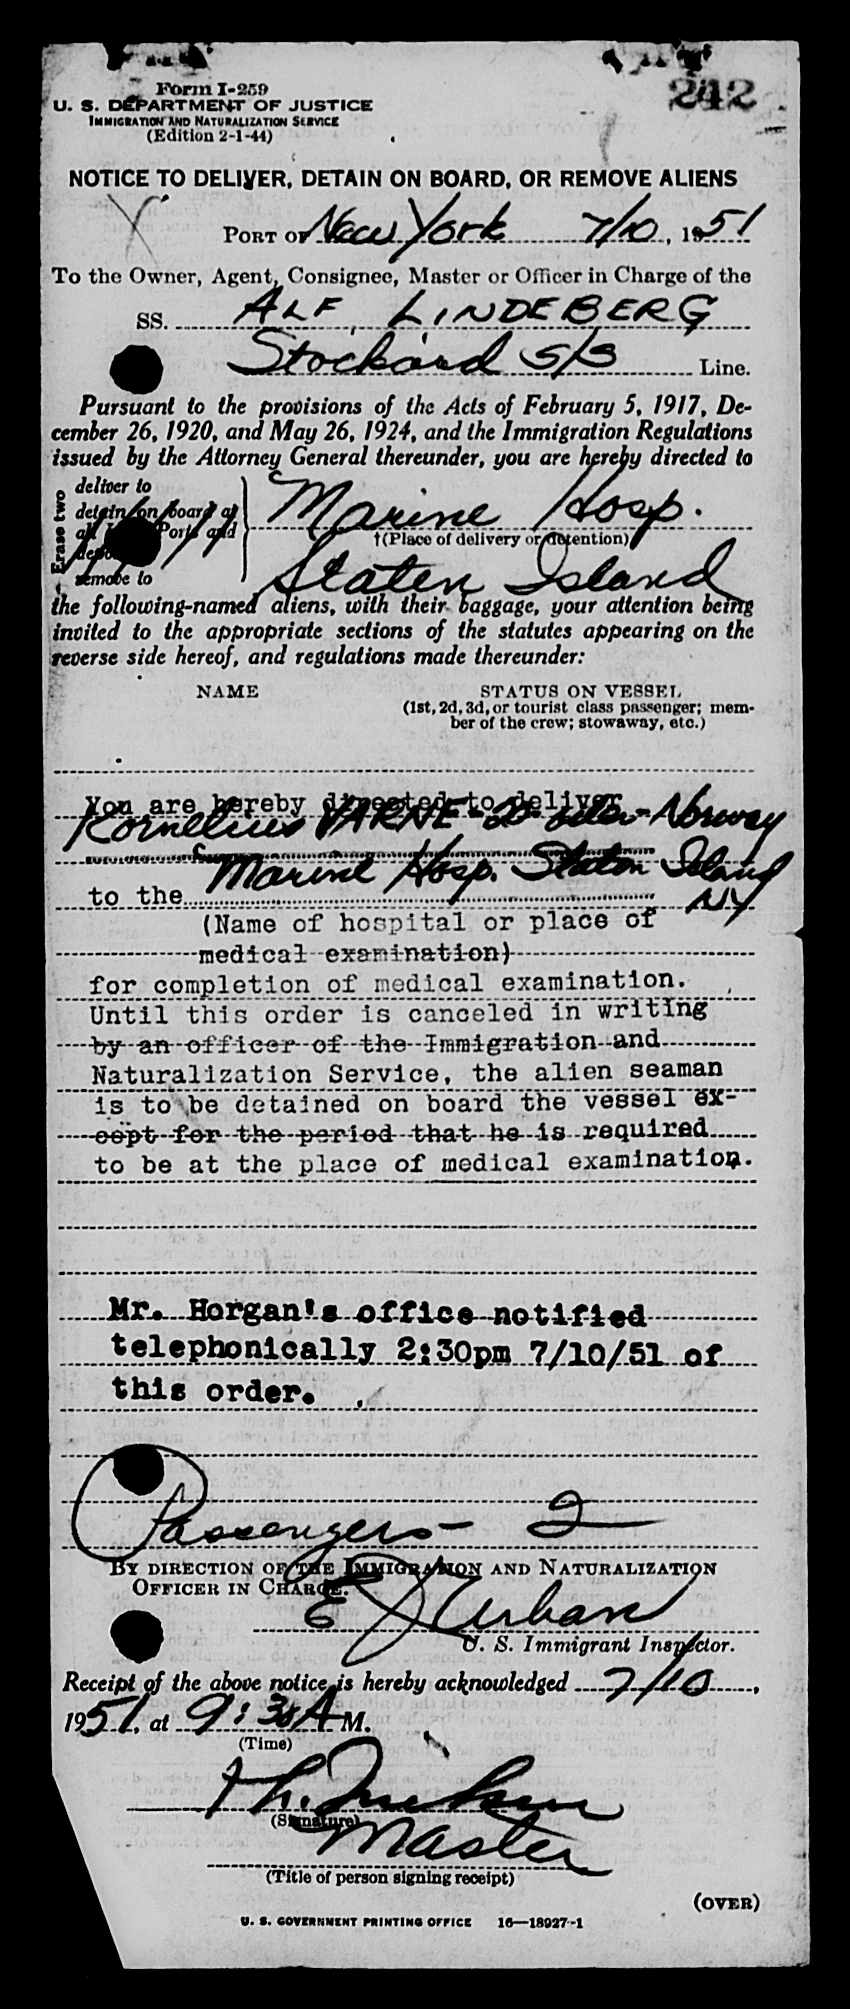 Form I-259
242
U. S. DEPARTMENT OF JUSTICE
IMMIGRATION AND NATURALIZATION SERVICE
(Edition 2-1-44)
NOTICE TO DELIVER, DETAIN ON BOARD, OR REMOVE ALIENS
PORT OF New York 7/10, 1951
To the Owner, Agent, Consignee, Master or Officer in Charge of the
SS. ALF LINDEBERG
Stockard S/S Line.
Pursuant to the provisions of the Acts of February 5, 1917, De-
cember 26, 1920, and May 26, 1924, and the Immigration Regulations
issued by the Attorney General thereunder, you are hereby directed to
Erase two
deliver to
detain on board at
Ports and
remove to
Marine Hosp.
†(Place of delivery or detention)
Staten Island
the following-named aliens, with their baggage, your attention being
invited to the appropriate sections of the statutes appearing on the
reverse side hereof, and regulations made thereunder:
NAME
STATUS ON VESSEL
(1st, 2d, 3d, or tourist class passenger; mem-
ber of the crew; stowaway, etc.)
You are hereby directed to deliver
Kornelius VARNE - 2D - Norway
to the Marine Hosp. Staton Island
NY
(Name of hospital or place of
medical examination)
for completion of medical examination.
Until this order is canceled in writing
by an officer of the Immigration and
Naturalization Service, the alien seaman
is to be detained on board the vessel ex-
cept for the period that he is required
to be at the place of medical examination.
Mr. Horgan's office notified
telephonically 2:30pm 7/10/51 of
this order.
Passengers - 2
BY DIRECTION OF THE IMMIGRATION AND NATURALIZATION
OFFICER IN CHARGE.
E J Urban
U. S. Immigrant Inspector.
Receipt of the above notice is hereby acknowledged 7/10,
1951, at 9:30 A M.
(Time)
(Signature)
Master
(Title of person signing receipt)
(OVER)
U. S. GOVERNMENT PRINTING OFFICE 16—18927-1